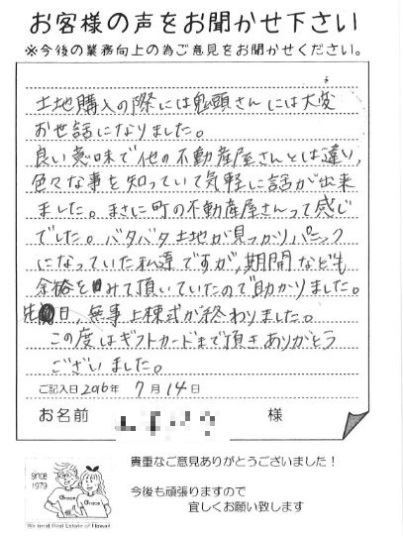 お客様の声をお聞かせ下さい
※今後の業務向上の為ご意見をお聞かせください。
土地購入の際には鬼頭さんには大変
お世話になりました。
良い意味で他の不動産屋さんとは違い,
色々な事を知っていて気軽に話が出来
ました。まさに町の不動産屋さんって感じ
でした。バタバタ土地が見つかりパニック
になっていた私達ですが,期間なども
余裕をみて頂いていたので助かりました。
先日,無事上棟式が終わりました。
この度はギフトカードまで頂きありがとう
ございました。
ご記入日 2016年 7月14日
お名前 様
貴重なご意見ありがとうございました！
今後も頑張りますので
宜しくお願い致します
SINCE
1979